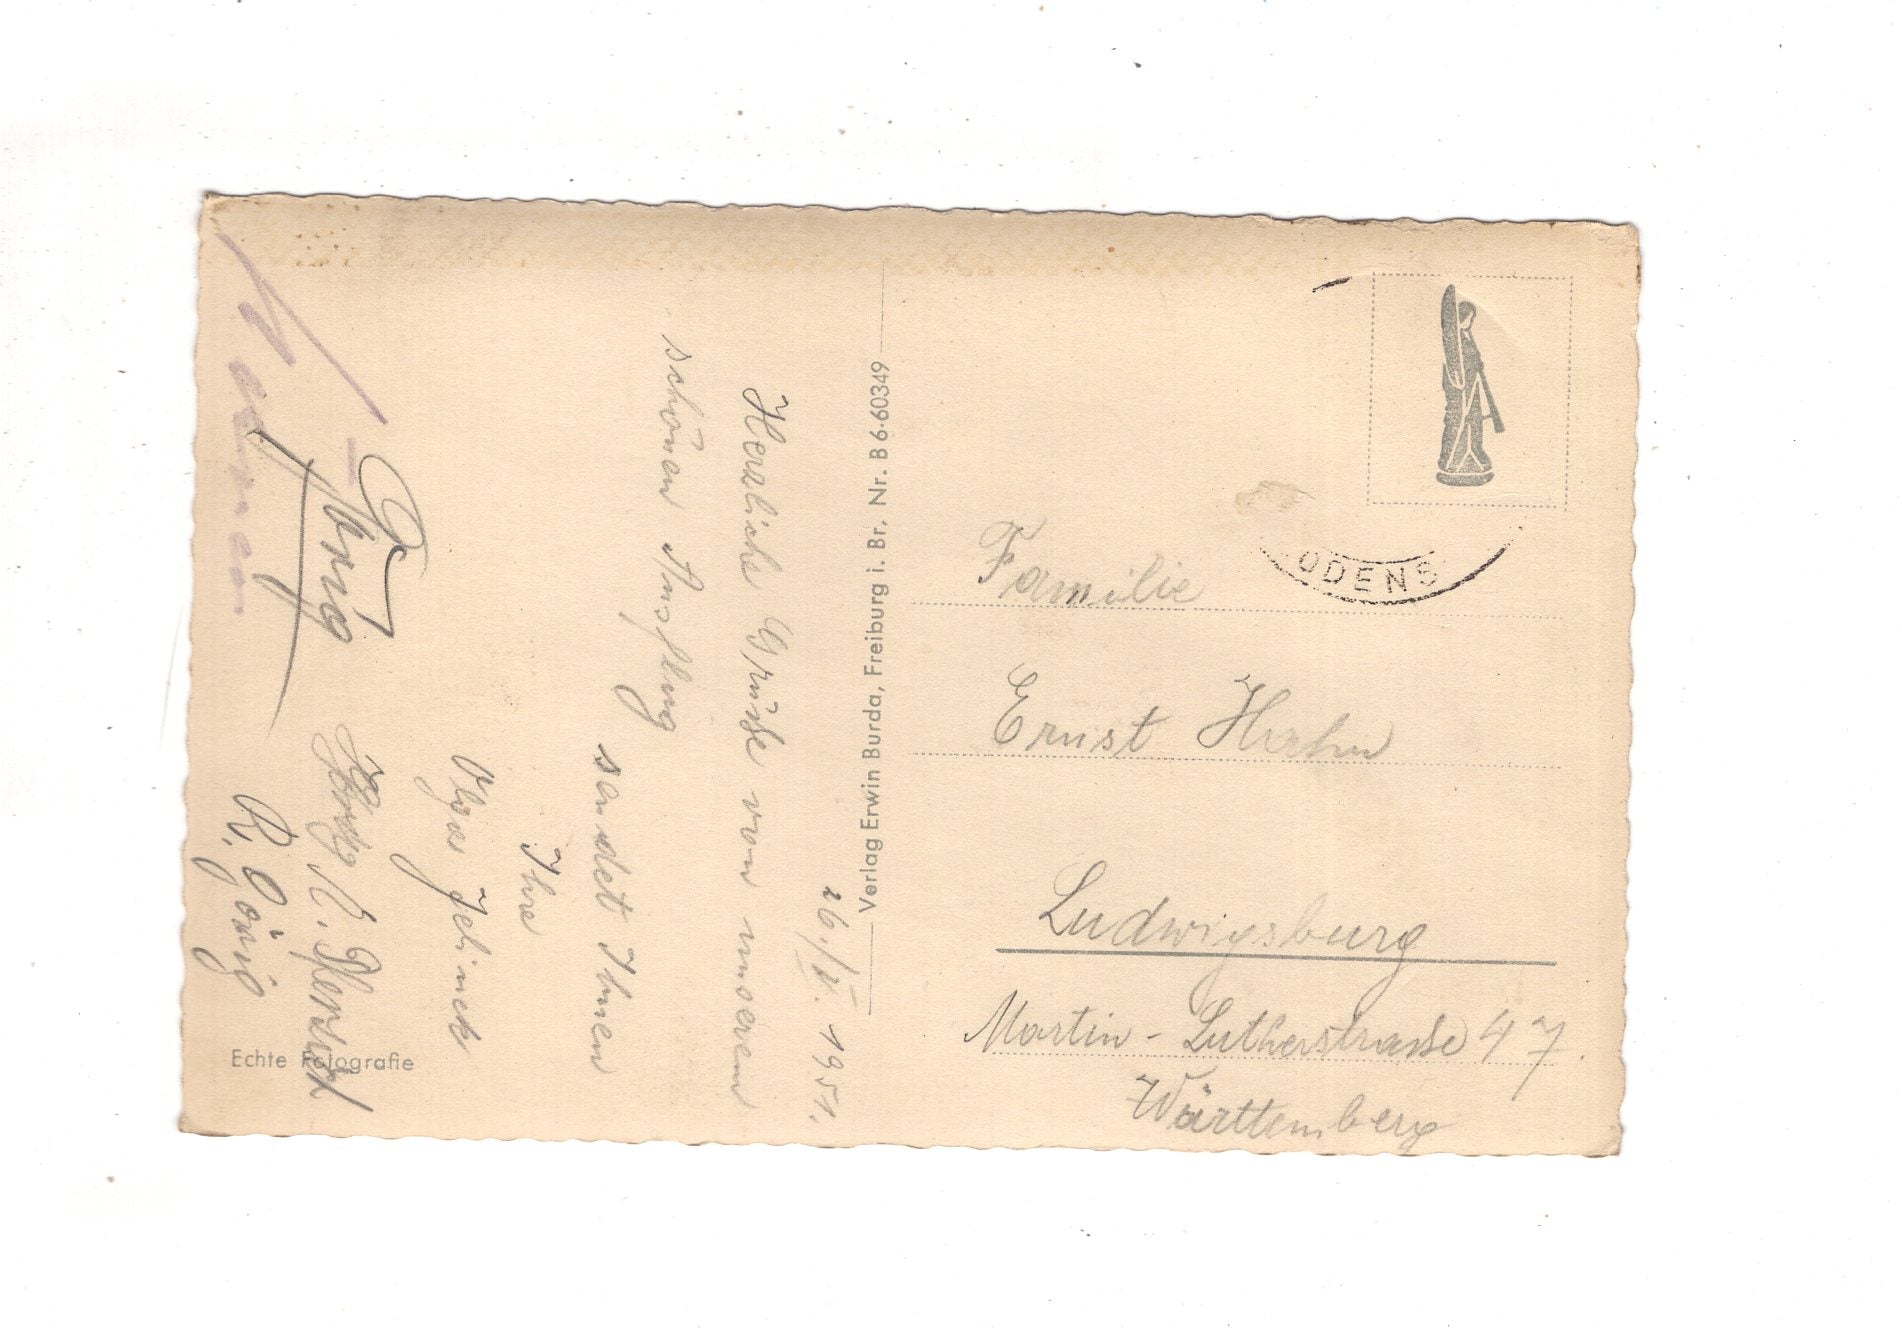 26./V. 1951.
Herzliche Grüsse von unserem
schönen Ausflug
sendet Ihnen
Ihre
Olga Jelinek
R. Görig
Echte Fotografie
Verlag Erwin Burda, Freiburg i. Br. Nr. B 6·60349
ODENS
Familie
Ernst Hahn
Ludwigsburg
Martin-Lutherstrasse 47.
Württemberg